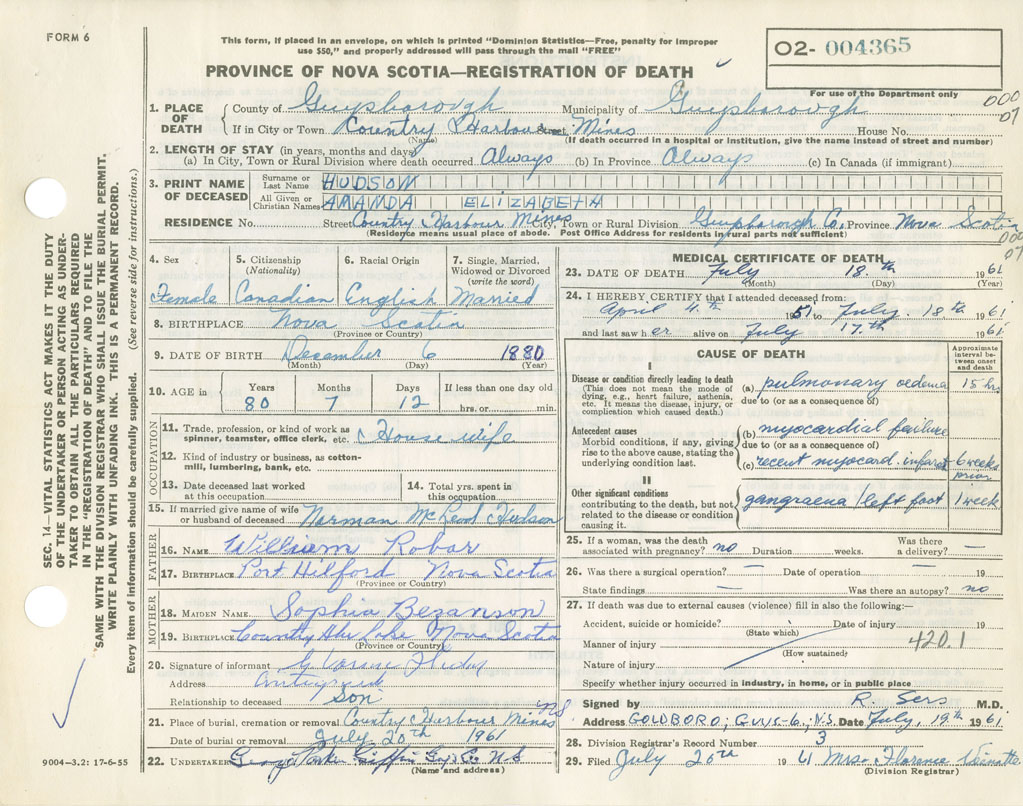 FORM 6
This form, if placed in an envelope, on which is printed "Dominion Statistics—Free, penalty for improper
use $50," and properly addressed will pass through the mail "FREE"
PROVINCE OF NOVA SCOTIA—REGISTRATION OF DEATH
02- 004365
For use of the Department only
000
07
1. PLACE OF DEATH
County of Guysborough Municipality of Guysborough
If in City or Town Country Harbour Street Mines House No.
(Name) (If death occurred in a hospital or institution, give the name instead of street and number)
2. LENGTH OF STAY (in years, months and days)
(a) In City, Town or Rural Division where death occurred Always (b) In Province Always (c) In Canada (if immigrant)
3. PRINT NAME OF DECEASED
Surname or Last Name HUDSON
All Given or Christian Names AMANDA ELIZABETH
RESIDENCE No. Street Country Harbour Mines City, Town or Rural Division Guysborough Co. Province Nova Scotia
(Residence means usual place of abode. Post Office Address for residents in rural parts not sufficient)
000
07
4. Sex
Female
5. Citizenship
(Nationality)
Canadian
6. Racial Origin
English
7. Single, Married,
Widowed or Divorced
(write the word)
Married
8. BIRTHPLACE Nova Scotia
(Province or Country)
9. DATE OF BIRTH December 6 1880
(Month) (Day) (Year)
10. AGE in
Years Months Days If less than one day old
80 7 12 hrs. or min.
OCCUPATION
11. Trade, profession, or kind of work as
spinner, teamster, office clerk, etc. Housewife
12. Kind of industry or business, as cotton-
mill, lumbering, bank, etc.
13. Date deceased last worked
at this occupation
14. Total yrs. spent in
this occupation
15. If married give name of wife
or husband of deceased Norman McLeod Hudson
FATHER
16. NAME William Robar
17. BIRTHPLACE Port Hilford Nova Scotia
(Province or Country)
MOTHER
18. MAIDEN NAME Sophia Bezanson
19. BIRTHPLACE Country Nova Scotia
(Province or Country)
20. Signature of informant
Address Antigonish
Relationship to deceased Son
21. Place of burial, cremation or removal Country Harbour Mines NS
Date of burial or removal July 20th 1961
22. UNDERTAKER Giffin N S
(Name and address)
9004—3.2: 17-6-55
MEDICAL CERTIFICATE OF DEATH
23. DATE OF DEATH July 18.th 1961
(Month) (Day) (Year)
24. I HEREBY CERTIFY that I attended deceased from:
April 4.th 1951 to July. 18th 1961
and last saw her alive on July 17.th 1961
CAUSE OF DEATH
Approximate
interval be-
tween onset
and death
I
Disease or condition directly leading to death
(This does not mean the mode of
dying, e.g., heart failure, asthenia,
etc. It means the disease, injury, or
complication which caused death.)
(a) pulmonary oedema 15 hrs
due to (or as a consequence of)
Antecedent causes
Morbid conditions, if any, giving
rise to the above cause, stating the
underlying condition last.
(b) myocardial failure
due to (or as a consequence of)
(c) recent myocard. infarct 6 weeks
prior
II
Other significant conditions
contributing to the death, but not
related to the disease or condition
causing it.
gangraena left foot 1 week
25. If a woman, was the death
associated with pregnancy? no Duration weeks. Was there
a delivery? —
26. Was there a surgical operation? — Date of operation — 19
State findings — Was there an autopsy? no
27. If death was due to external causes (violence) fill in also the following:—
Accident, suicide or homicide? Date of injury 19
(State which)
Manner of injury 420.1
(How sustained)
Nature of injury
Specify whether injury occurred in industry, in home, or in public place
Signed by R. Sers M.D.
Address GOLDBORO, GUYS-G, N.S. Date July, 19th 1961
28. Division Registrar's Record Number 3
29. Filed July 20th 1961 Mrs. Florence
(Division Registrar)
SEC. 14—VITAL STATISTICS ACT MAKES IT THE DUTY
OF THE UNDERTAKER OR PERSON ACTING AS UNDER-
TAKER TO OBTAIN ALL THE PARTICULARS REQUIRED
IN THE "REGISTRATION OF DEATH" AND TO FILE THE
SAME WITH THE DIVISION REGISTRAR WHO SHALL ISSUE THE BURIAL PERMIT.
WRITE PLAINLY WITH UNFADING INK. THIS IS A PERMANENT RECORD.
Every item of information should be carefully supplied. (See reverse side for instructions.)